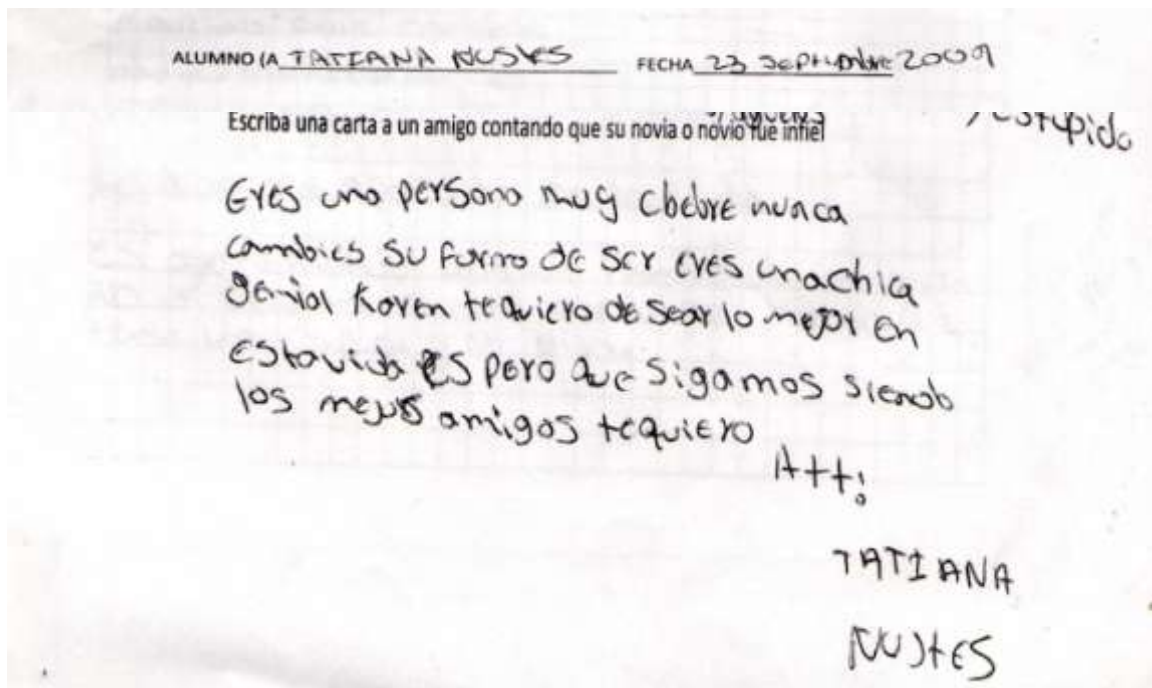 ALUMNO (A TATIANA NUSTES FECHA 23 septiembre 2009
estupido
Escriba una carta a un amigo contando que su novia o novio fue infiel
Eres una persona muy chebre nunca
cambies su forma de ser eres unachica
genial Karen tequiero desear lo mejor en
estavida espero que sigamos siendo
los mejors amigos tequiero
Att:
TATIANA
NUSTES